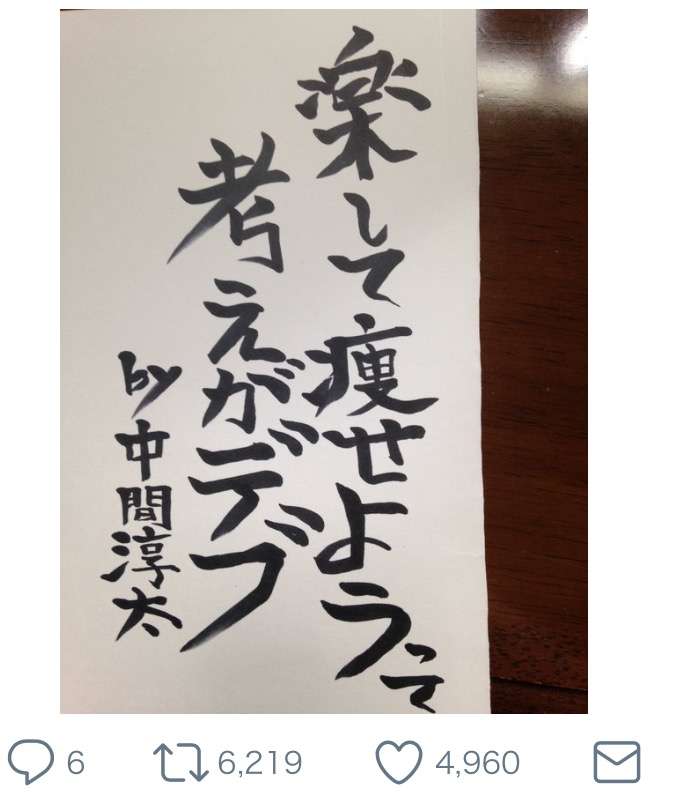 楽して痩せようって
考えがデブ
by中間淳太
6
6,219
4,960